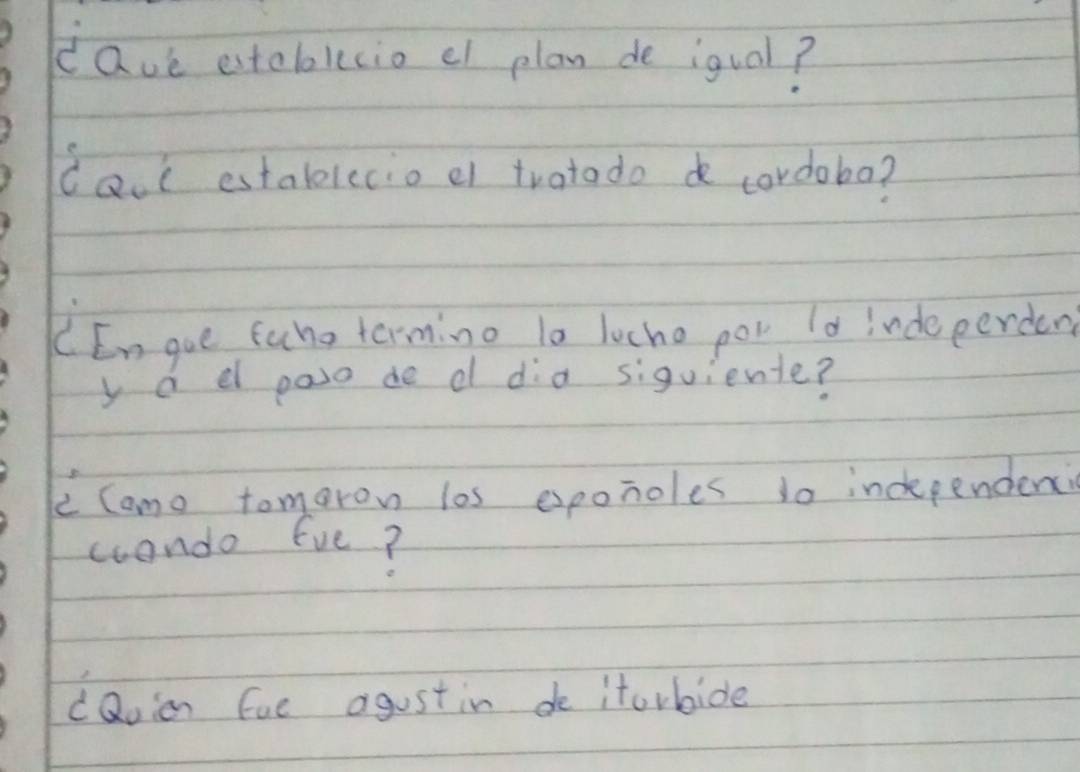 ¿Qué establecio el plan de igual?
¿Qué establecio el tratado de cordoba?
¿En que fecha termino la lucha por la independenci
y a el paso de el dia siguiente?
¿Como tomaron los españoles la independencia
cuando fue?
¿Quien fue agustin de iturbide